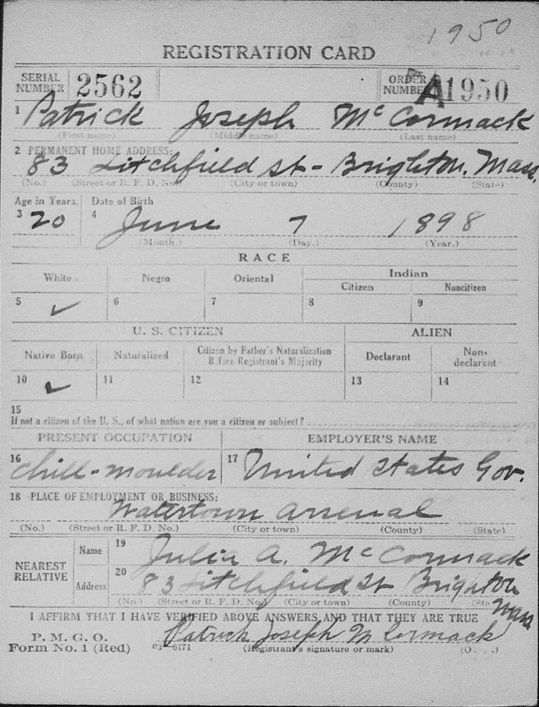 1950
REGISTRATION CARD
SERIAL NUMBER 2562 ORDER NUMBER A1950
1 Patrick Joseph McCormack
(First name) (Middle name) (Last name)
2 PERMANENT HOME ADDRESS:
83 Litchfield St - Brighton, Mass.
(No.) (Street or R. F. D. No.) (City or town) (County) (State)
Age in Years Date of Birth
3 20 4 June 7 1898
(Month.) (Day.) (Year.)
RACE
White Negro Oriental Indian
Citizen Noncitizen
5 ✓ 6 7 8 9
U. S. CITIZEN ALIEN
Native Born Naturalized Citizen by Father's Naturalization Before Registrant's Majority Declarant Non-declarant
10 ✓ 11 12 13 14
15
If not a citizen of the U. S., of what nation are you a citizen or subject?
PRESENT OCCUPATION EMPLOYER'S NAME
16 Chill-moulder 17 United States Gov.
18 PLACE OF EMPLOYMENT OR BUSINESS:
Watertown Arsenal
(No.) (Street or R. F. D. No.) (City or town) (County) (State)
NEAREST RELATIVE
Name 19 Julia A. McCormack
Address 20 83 Litchfield St Brighton Mass
(No.) (Street or R. F. D. No.) (City or town) (County)
I AFFIRM THAT I HAVE VERIFIED ABOVE ANSWERS AND THAT THEY ARE TRUE
P. M. G. O.
Form No. 1 (Red) Patrick Joseph McCormack
(Registrant's signature or mark)